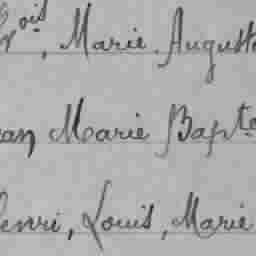 Fois, Marie. Auguste
ean Marie Bapte
Henri, Louis, Marie